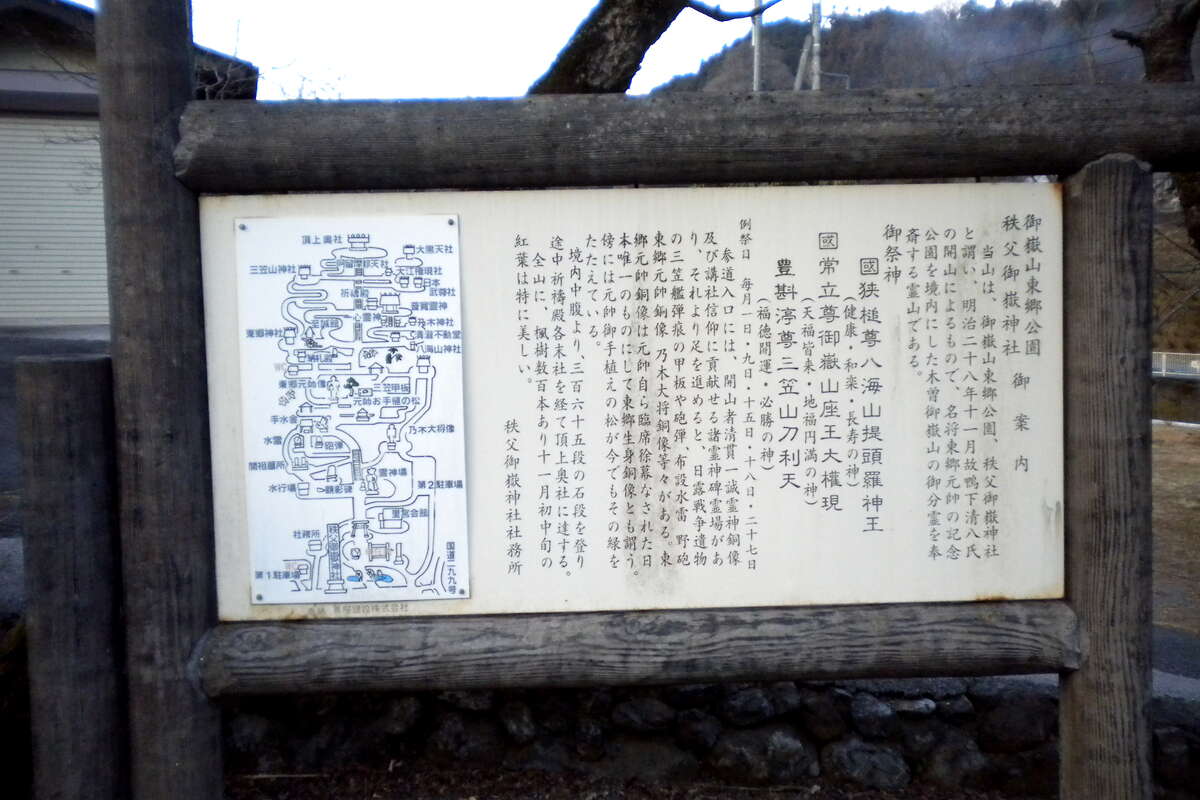 御嶽山東郷公園
秩父御嶽神社 御案内
当山は、御嶽山東郷公園、秩父御嶽神社
と謂い、明治二十八年十一月故鴨下清八氏
の開山によるもので、名将東郷元帥の記念
公園を境内にした木曽御嶽山の御分霊を奉
斎する霊山である。
御祭神
國狭槌尊八海山提頭羅神王
(健康・和楽・長寿の神)
國常立尊御嶽山座王大權現
(天福皆来・地福円満の神)
豊斟渟尊三笠山刀利天
(福徳開運・必勝の神)
例祭日 毎月一日・九日・十五日・十八日・二十七日
参道入口には、開山者清貫一誠霊神銅像
及び講社信仰に貢献せる諸霊神碑霊場があ
り、それより足を進めると、日露戦争遺物
の三笠艦弾痕の甲板や砲弾、布設水雷、野砲
東郷元帥銅像、乃木大将銅像等々がある。東
郷元帥銅像は元帥自ら臨席徐幕なされた日
本唯一のものにして東郷生身銅像とも謂う。
傍には元帥御手植えの松が今でもその緑を
たたえている。
境内中腹より、三百六十五段の石段を登り
途中祈禱殿各末社を経て頂上奥社に達する。
全山に、楓樹数百本あり十一月初中旬の
紅葉は特に美しい。
秩父御嶽神社社務所
頂上奥社
大黒天社
阿留摩耶天社
三笠山神社
大江権現社
日本
武尊社
祈祷殿
心霊神
乃木神社
至誠館
清瀧不動堂
東郷神社
八海山神社
納札殿
東郷元帥像
三笠甲板
元帥お手植の松
手水舎
乃木大将像
水雷
砲弾
開祖墓所
霊神場
水行場
顕彰碑
第2駐車場
里宮会館
社務所
秩父御嶽神社
国道二九九号
第1駐車場